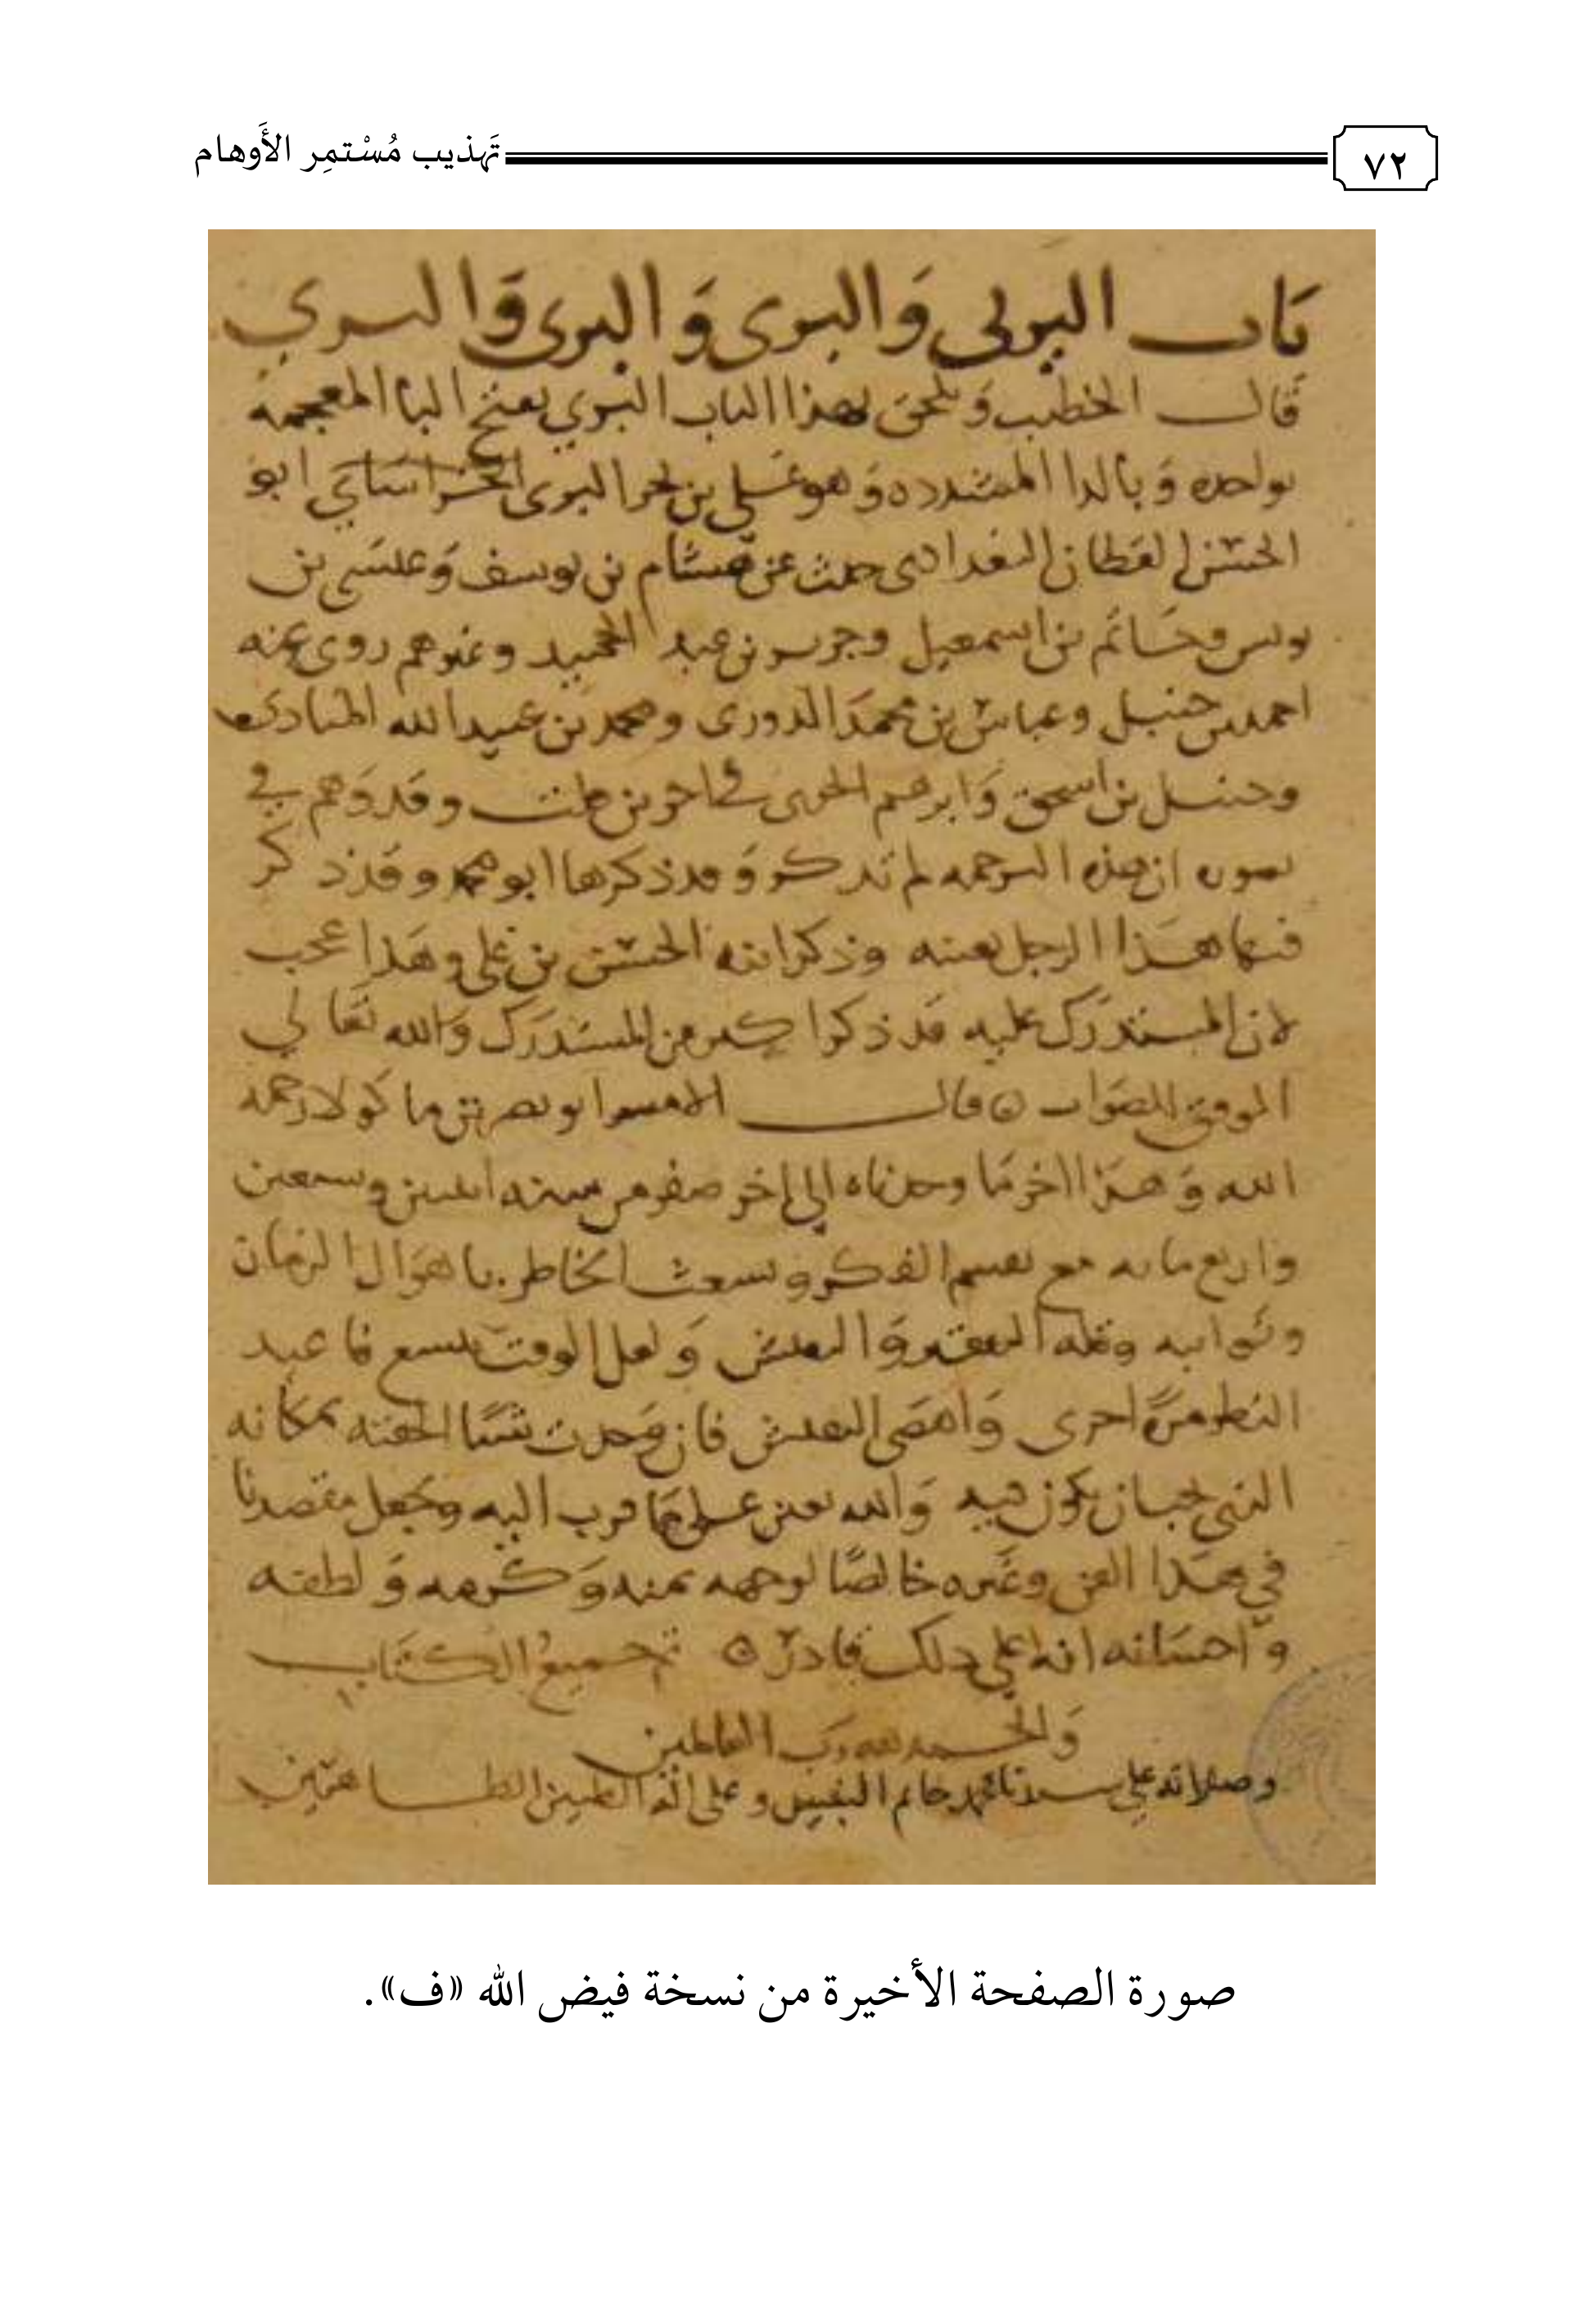 ٧٢
تَهذيب مُسْتمِر الأَوهام
باب البرلي والبري والبري والبري
قال الخطيب ويلحق بهذا الباب البري بفتح البا المعجمه
بواحده وبالرا المشدده وهو علي بن بحر البري الخراساني ابو
الحسن القطان البغدادى حدث عن هشام بن يوسف وعيسى بن
يونس وحاتم بن اسمعيل وجرير بن عبد الحميد وغيرهم روى عنه
احمد بن حنبل وعباس بن محمد الدورى ومحمد بن عبيد الله المنادى
وحنبل بن اسحق وابرهيم الحربى في اخرين قلت وقد وهم في
ان هذه الترجمه لم تذكر وقد ذكرها ابو محمد وقد ذكر
فيها هذا الرجل بعينه وذكر ابنه الحسن بن علي وهذا عجب
لان المستدرك عليه قد ذكر اكثر من المستدرك والله تعالى
الموفق للصواب قال الامير ابو نصر بن ماكولا رحمه
الله وهذا اخر ما وجدناه الى اخر صفر من سنه اثنتين وسبعين
واربع مايه مع تقسم الفكر وتشعث الخاطر باهوال الزمان
ونوايبه وقله والتفتيش ولعل الوقت يتسع فاعيد
النظر مرة اخرى التفتيش فان وجدت شيئا الحقته بمكانه
الذى يجب ان يكون فيه والله يعين على ما قرب اليه ويجعل مقصدنا
في هذا الفن وغيره خالصا لوجهه بمنه وكرمه ولطفه
واحسانه انه على ذلك قادر تم جميع الكتاب
والحمد لله رب العالمين
وصلاته على سيدنا محمد خاتم النبيين وعلى اله الطيبين الطاهرين
صورة الصفحة الأخيرة من نسخة فيض الله «ف».